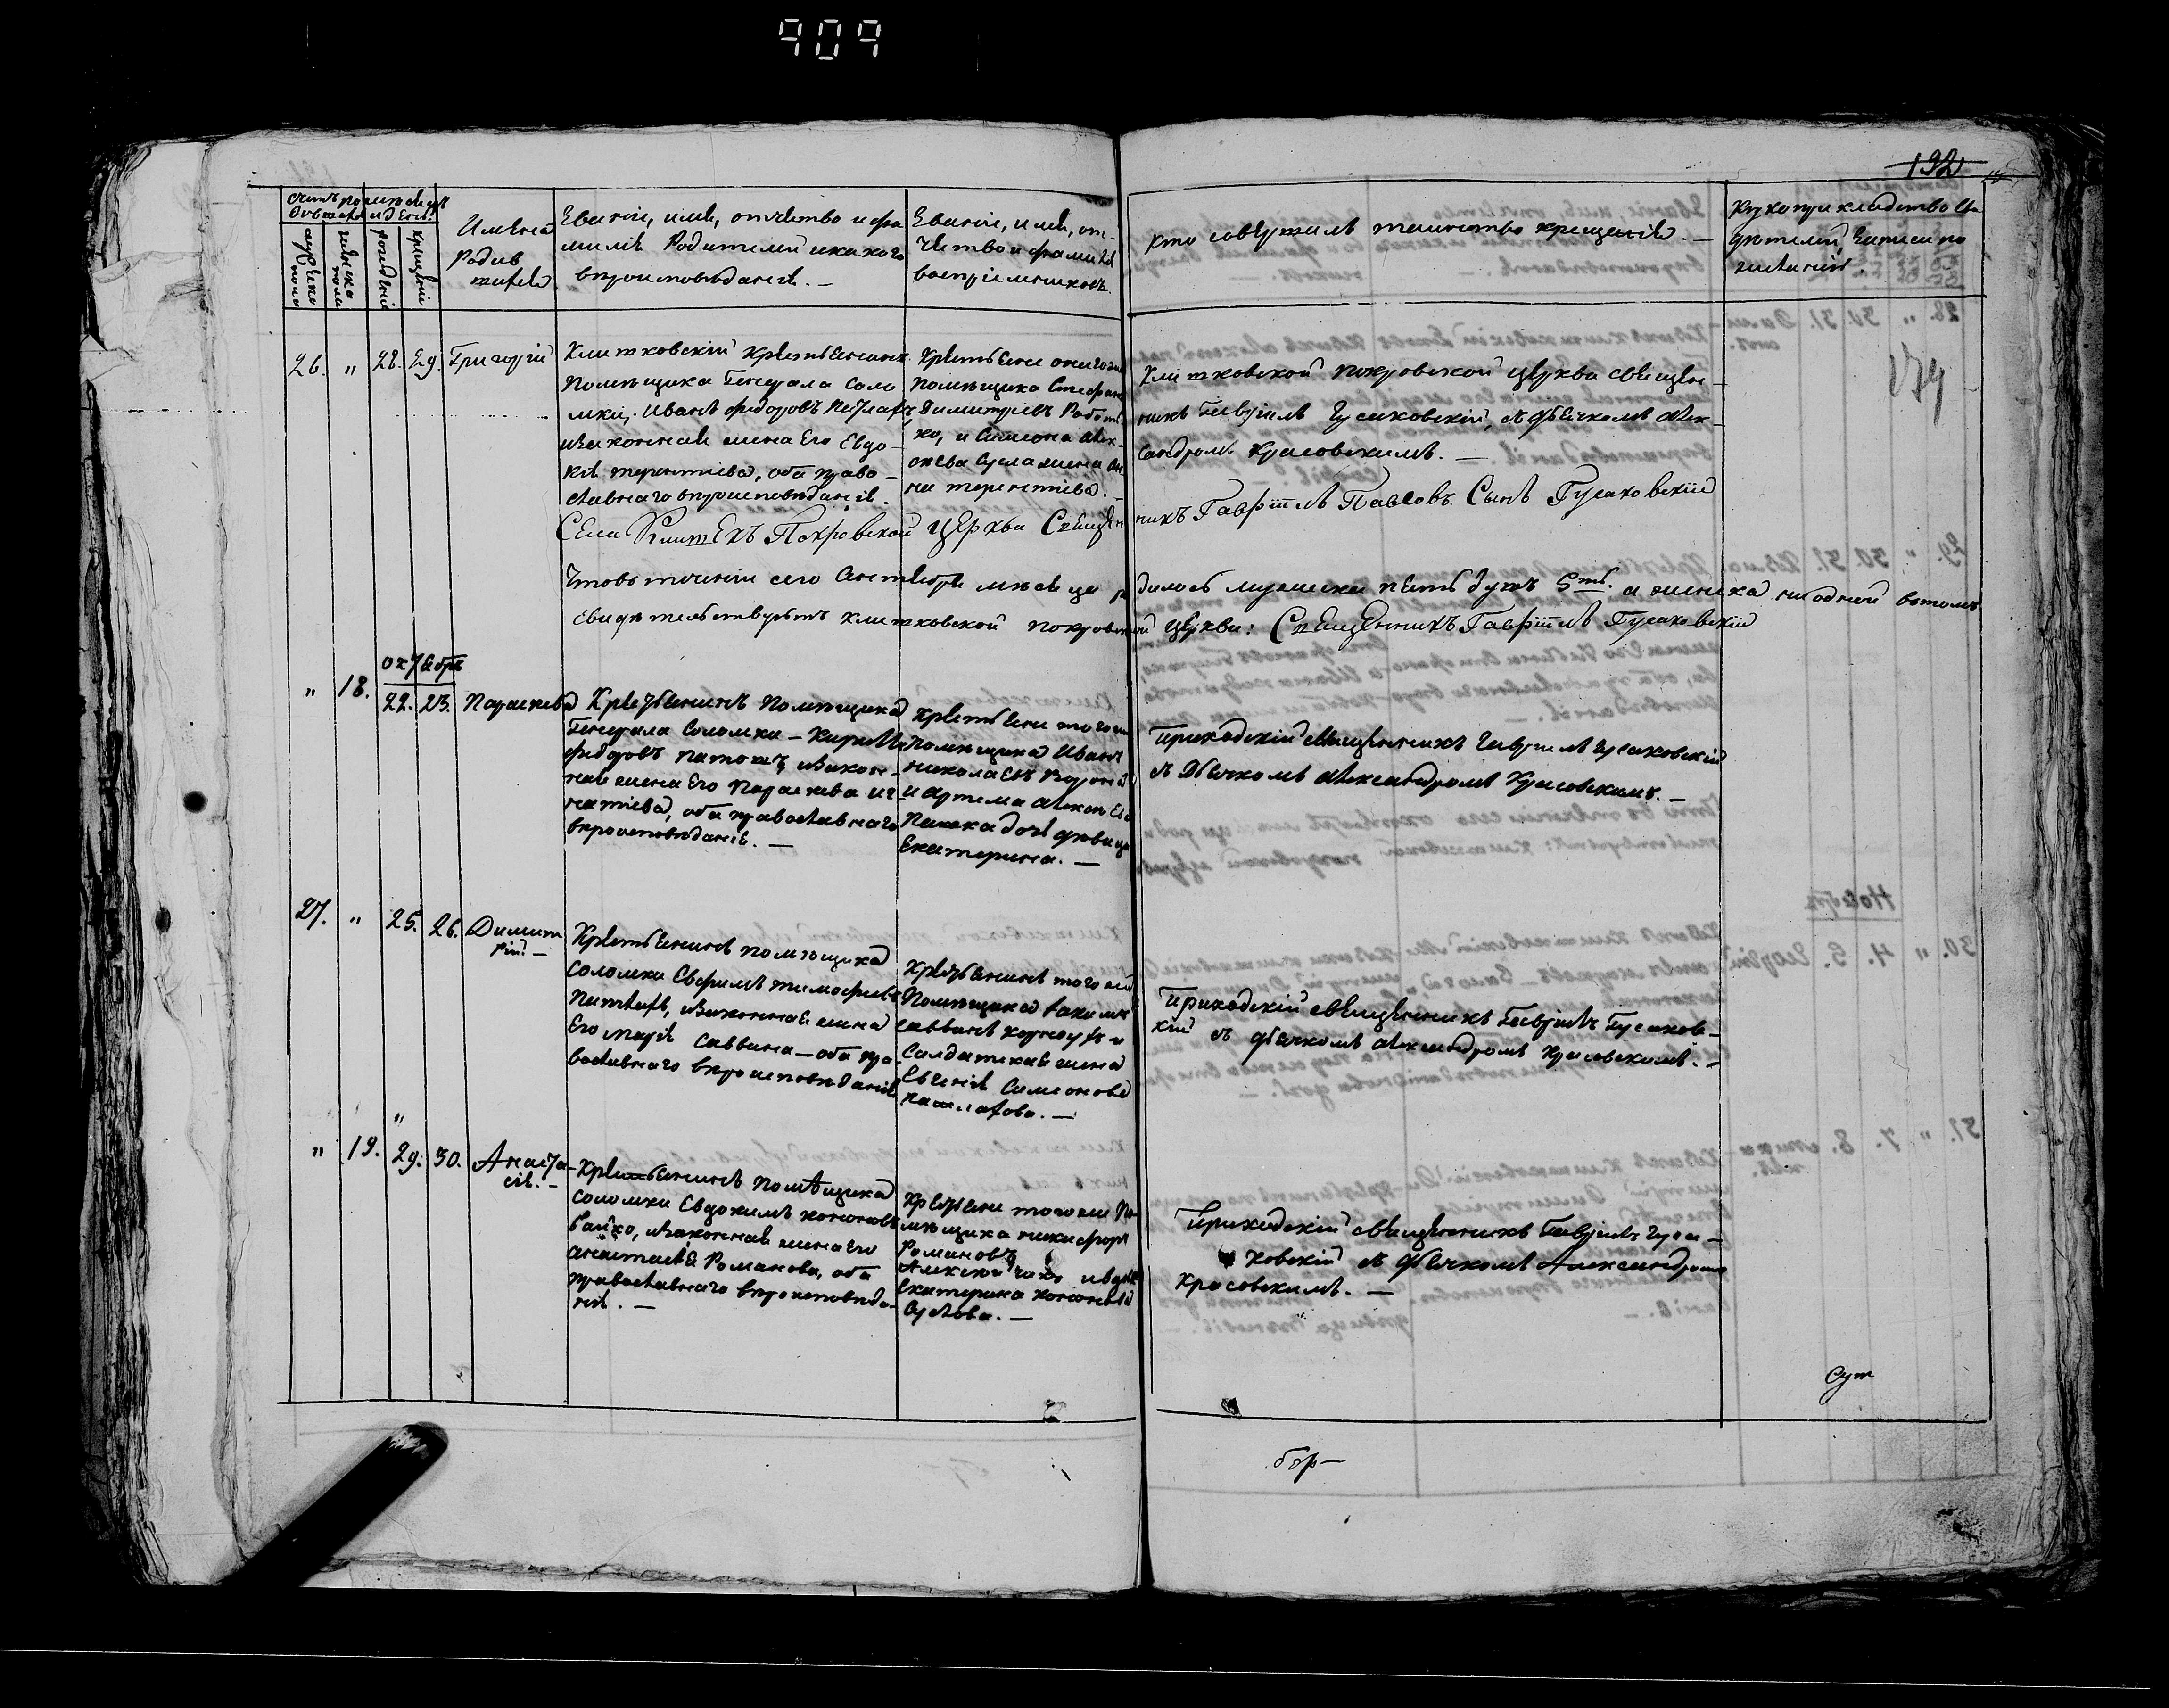 909
132
Счетъ родив- Мѣсяцъ
шихся и день
мужеска пола
женска пола
рожденія
крещенія
Имена
родив
шихся
Званіе, имя, отчество и фа
милія Родителей и какого
вѣроисповѣданія. —
Званіе, имя, от-
чество и фамилія
воспріемниковъ.
Кто совершалъ таинство крещенія. —
Рукоприкладство сви
дѣтелей записи по
желанію.
26. " 28. 29. Григорій
Клитковскій крестьянинъ
Помѣщика Генерала Соло
мки, Иванъ Федоровъ
и законная жена его Евдо-
кія Терентіева, оба право-
славнаго вѣроисповѣданія.
Крестьяне онаго же
Помѣщика Стефанъ
Димитріевъ
ко, и Симеона Алек-
сѣева жена Ан
на Терентіева. —
Клитковской Покровской Церкви Священ-
никъ Гавріилъ Гусаковскій, съ дьячкомъ Алек-
сандромъ Красовскимъ. —
179
Села Клитекъ Покровской Церкви Священникъ Гавріилъ Павловъ Сынъ Гусаковскій
Что въ теченіи сего Сентября мѣсяца родилось мужеска пять душъ 5ть. а женска ни одной въ томъ
свидѣтельствуетъ Клитковской Покровской Церкви: Священникъ Гавріилъ Гусаковскій
Октябрь
" 18. 22. 23. Параскева
Крестьянинъ Помѣщика
Генерала Соломки — Кириллъ
Федоровъ и закон-
ная жена его Параскева Иг-
натіева, оба православнаго
вѣроисповѣданія. —
Крестьяне того же
Помѣщика Иванъ
Николаевъ
и Артема Алексѣева
дочь дѣвица
Екатерина. —
Приходскій Священникъ Гавріилъ Гусаковскій
съ Дьячкомъ Александромъ Красовскимъ. —
27. " 25. 26. Димит
рій. —
Крестьянинъ помѣщика
Соломки Ефимъ Тимофеевъ
и законная жена
его Марія Саввина — оба пра
вославнаго вѣроисповѣданія
Крестьянинъ того же
Помѣщика
Саввинъ и
Солдатская жена
Евгенія Симеонова
Приходскій Священникъ Гавріилъ Гусаков-
кій съ дьячкомъ Александромъ Красовскимъ. —
" 19. 29. 30. Анаста-
сія. —
Крестьянинъ Помѣщика
Соломки Евдокимъ Кононовъ
Байко, и законная жена его
Анастасія Романова, оба
православнаго вѣроисповѣда-
нія. —
Крестьяне того же По-
мѣщика Никифоръ
Романовъ
и вдова
Екатерина Кононова
Суслова. —
Приходскій Священникъ Гавріилъ Гуса-
ковскій съ дьячкомъ Александромъ
Красовскимъ. —